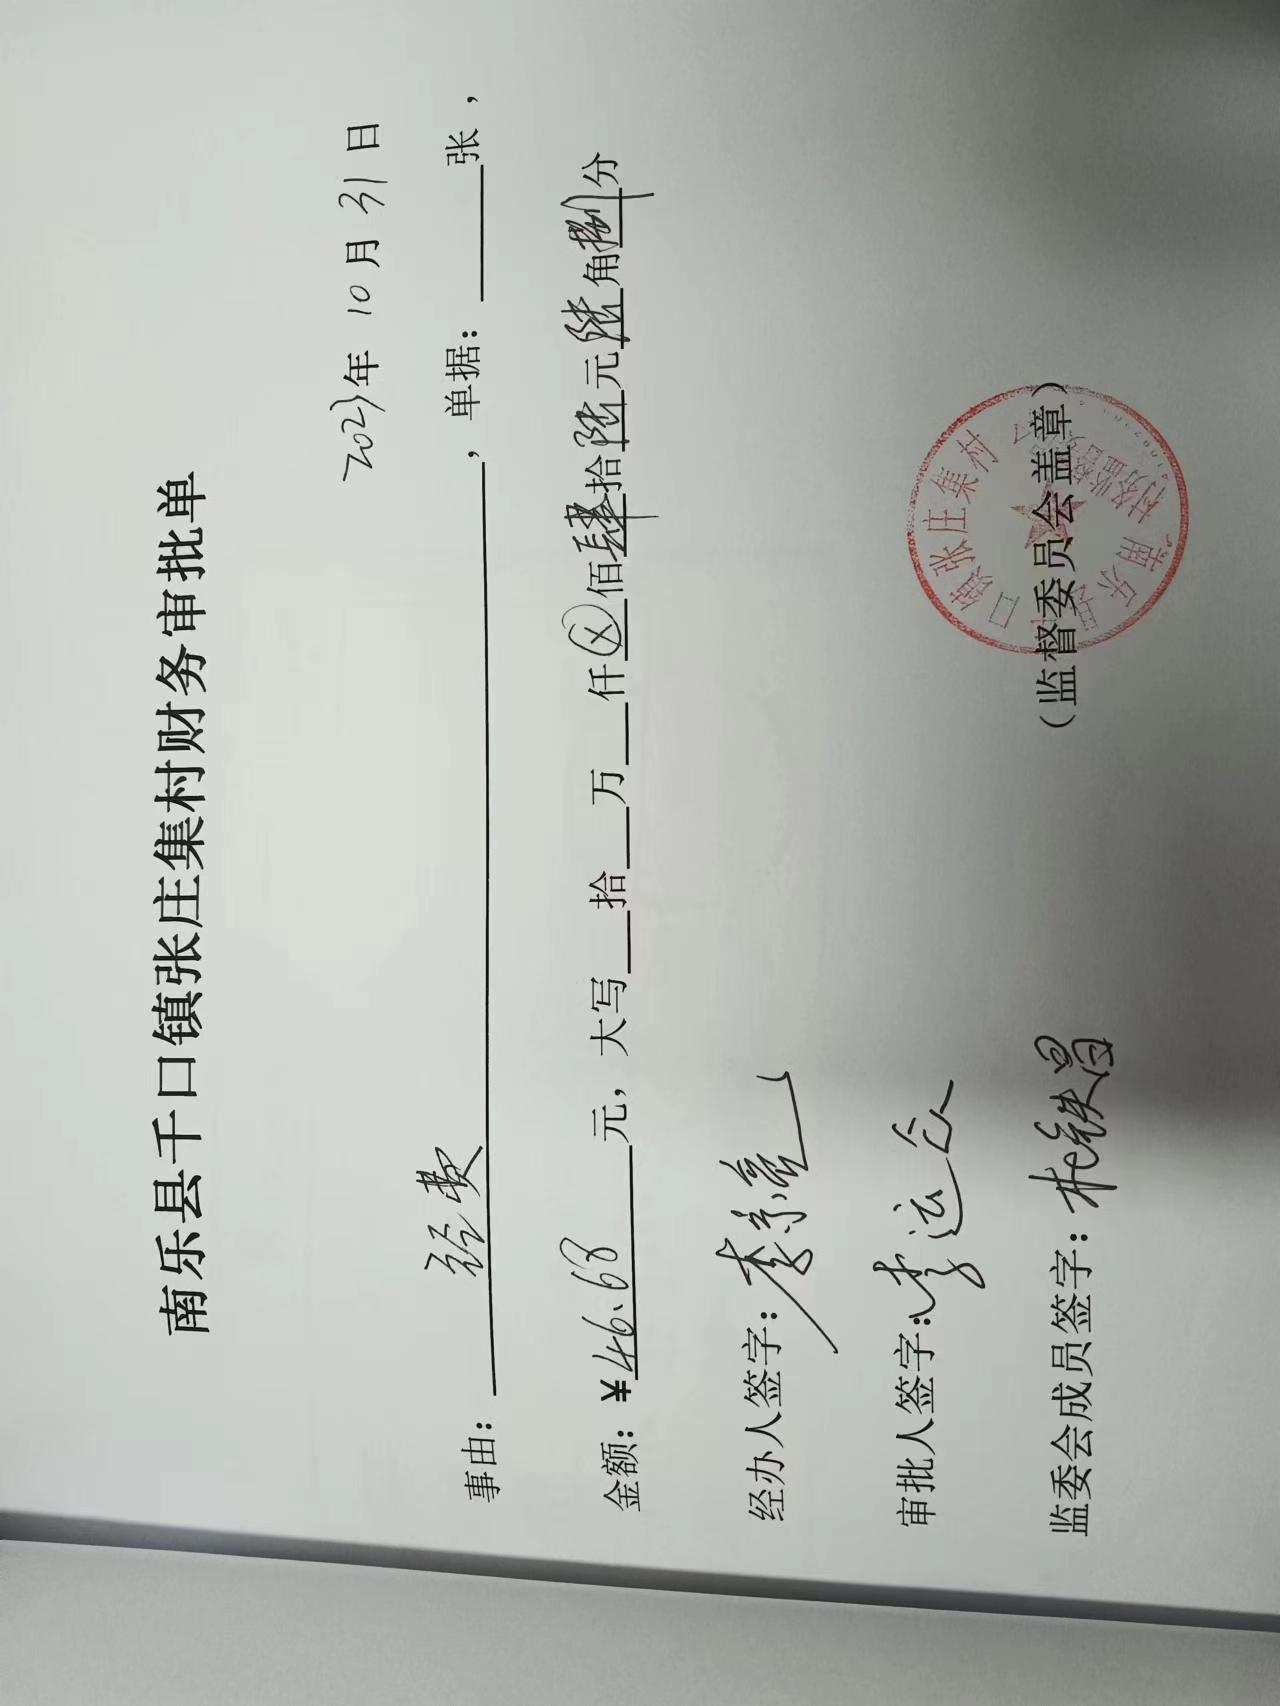 南乐县千口镇张庄集村财务审批单
2023年 10 月 31 日
事由： 费 ，单据： 张，
金额：¥46.68 元，大写 拾 万 仟ⓧ佰肆拾陆元陆角捌分
经办人签字：李
审批人签字：李运众
监委会成员签字：杜铁昌
（监督委员会盖章）
南乐县 口镇张庄集村
村务监督委员会